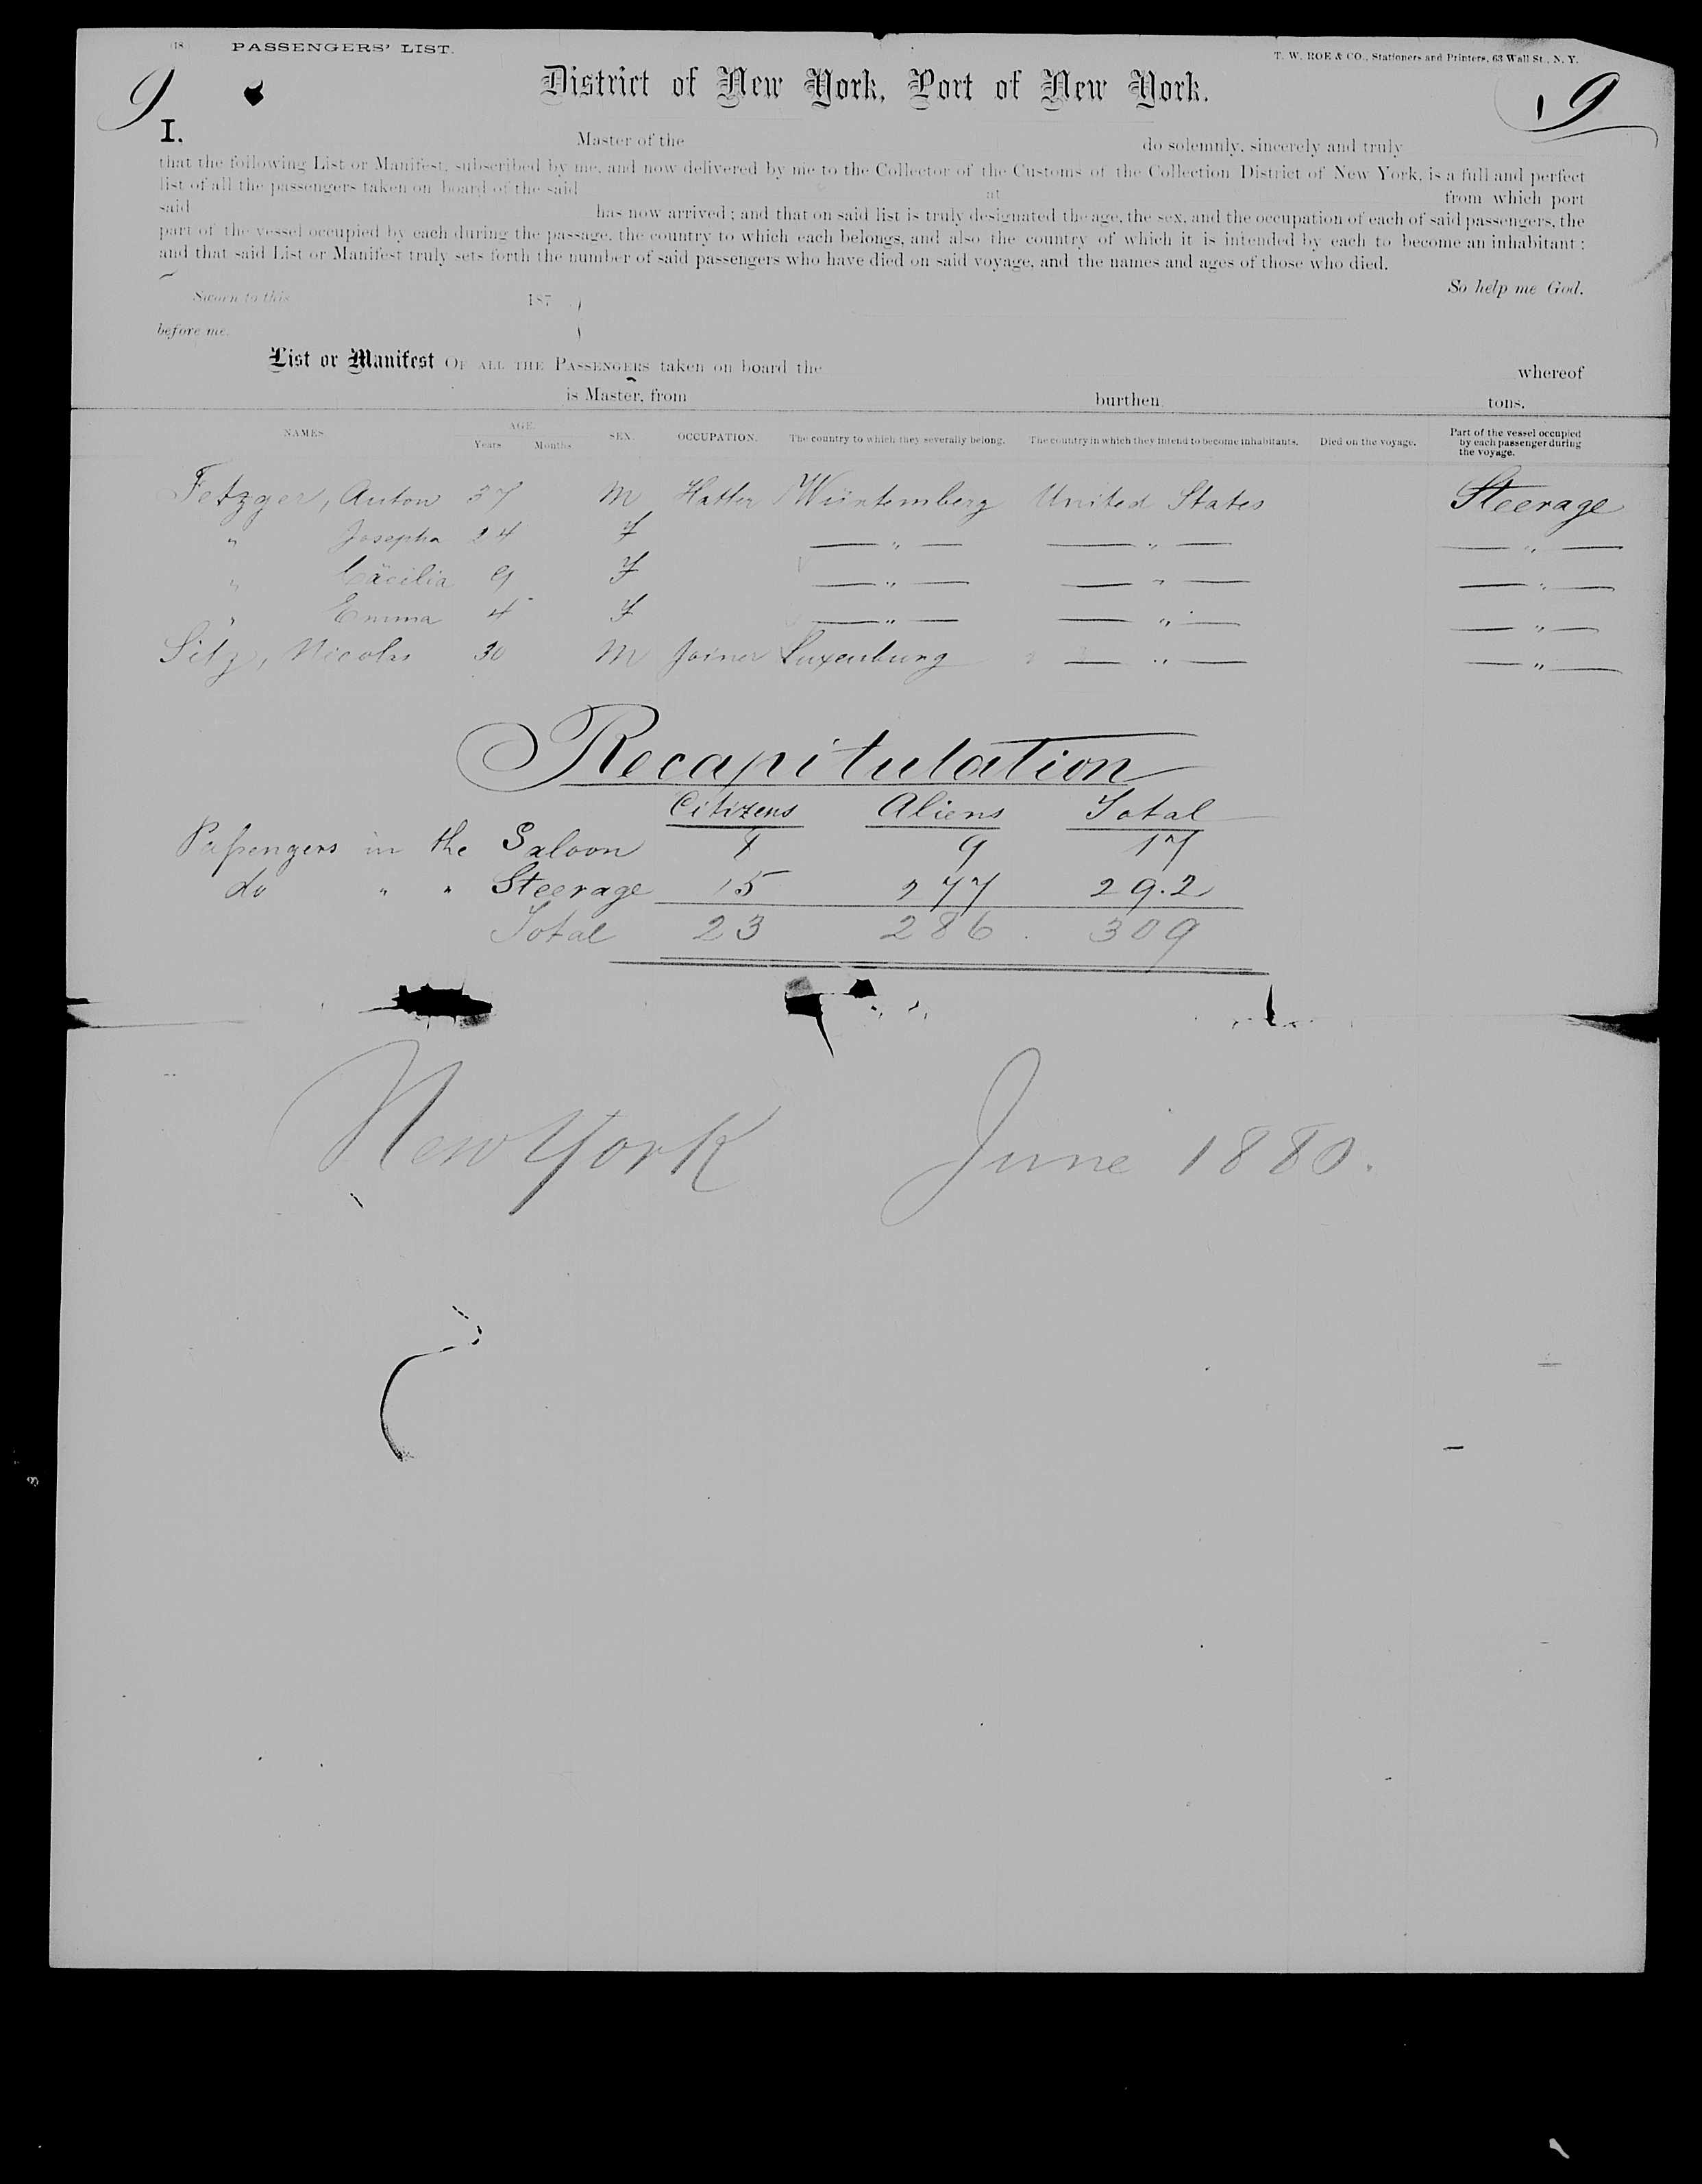 (18) PASSENGERS' LIST. T. W. ROE & CO., Stationers and Printers, 63 Wall St., N. Y.
9 9
District of New York, Port of New York.
I. Master of the do solemnly, sincerely and truly
that the following List or Manifest, subscribed by me, and now delivered by me to the Collector of the Customs of the Collection District of New York, is a full and perfect
list of all the passengers taken on board of the said at from which port
said has now arrived; and that on said list is truly designated the age, the sex, and the occupation of each of said passengers, the
part of the vessel occupied by each during the passage, the country to which each belongs, and also the country of which it is intended by each to become an inhabitant;
and that said List or Manifest truly sets forth the number of said passengers who have died on said voyage, and the names and ages of those who died.
So help me God.
Sworn to this 187
before me.
List or Manifest OF ALL THE PASSENGERS taken on board the whereof
is Master, from burthen tons.
NAMES AGE. Years Months SEX. OCCUPATION. The country to which they severally belong. The country in which they intend to become inhabitants. Died on the voyage. Part of the vessel occupied by each passenger during the voyage.
Fetzger, Anton 37 M Hatter Würtemberg United States Steerage
" Josepha 24 F — " — — " — — " —
" Cäcilia 9 F — " — — " — — " —
" Emma 4 F — " — — " — — " —
Sitz, Nicolas 30 M Joiner Luxenburg — " — — " —
Recapitulation
Citizens Aliens Total
Passengers in the Saloon 8 9 17
do " " Steerage 15 277 29.2
Total 23 286. 309
New York June 1880.